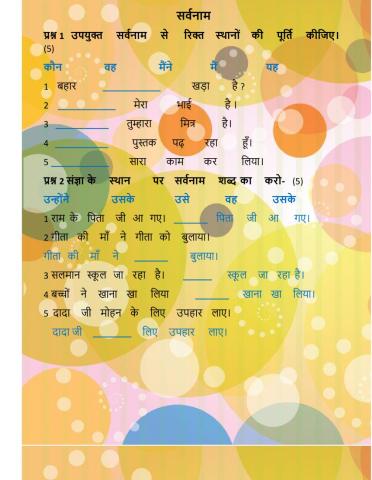 सर्वनाम
प्रश्न 1 उपयुक्त सर्वनाम से रिक्त स्थानों की पूर्ति कीजिए।
(5)
कौन वह मैंने मैं यह
1 बहार ________ खड़ा है ?
2 ________ मेरा भाई है ।
3 ________ तुम्हारा मित्र है।
4 ________ पुस्तक पढ़ रहा हूँ।
5 ________ सारा काम कर लिया।
प्रश्न 2 संज्ञा के स्थान पर सर्वनाम शब्द का करो- (5)
उन्होंने उसके उसे वह उसके
1 राम के पिता जी आ गए। ______ पिता जी आ गए।
2 गीता की माँ ने गीता को बुलाया।
गीता की माँ ने ______ बुलाया।
3 सलमान स्कूल जा रहा है। ______ स्कूल जा रहा है।
4 बच्चों ने खाना खा लिया ______ खाना खा लिया।
5 दादा जी मोहन के लिए उपहार लाए।
दादा जी ______ लिए उपहार लाए।